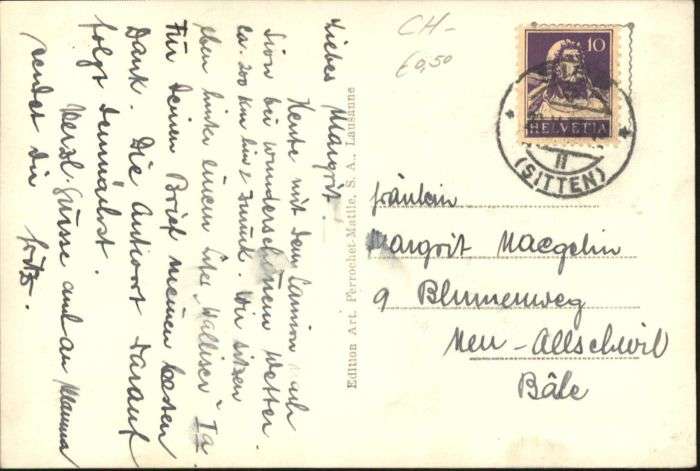 Liebes Margrit
Heute mit dem Camion nach
Sion bei wunderschönem Wetter.
ca. 200 km hin & zurück. Wir sitzen
eben hinter einem Liter "Walliser" Ia
Für Deinen Brief meinen besten
Dank. Die Antwort darauf
folgt demnächst.
Herzl. Grüsse auch an Mamma
sendet Dir
Fritz.
Edition Art. Perrochet-Matile, S. A., Lausanne
CH-
€0,50
10
HELVETIA
II
(SITTEN)
Fräulein
Margrit Naegelin
9 Blumenweg
Neu-Allschwil
Bâle